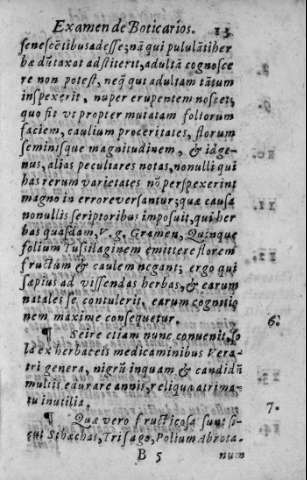 Examen de Boticarios. 13
senescẽtibus adesse; nã qui pululãti her
ba dũtaxat adstiterit, adultã cognosce
re non potest, neq́ qui adultam tãtum
inspexerit, nuper erupentem noscet;
quo fit vt propter mutatam foliorum
faciem, caulium proceritates, florum
seminisque magnitudinem, & idge-
nus, alias peculiares notas, nonulli qui
has rerum varietates nõ perspexerint
magno in errore versantur; quæ causa
nonullis scriptoribus imposuit, qui her
bas quasdam, V. g. Gramen, Quinque
folium Tusilaginem emittere florem
fructum & caulem negant; ergo qui
sæpius ad vissendas herbas, & earum
natales se contulerit, earum cognitio
nem maxime consequetur.
¶ Scire etiam nunc conuenit, so 6.
la ex herbaceis medicaminibus Vera-
tri genera, nigrũ inquam & candidũ
multis edurare annis, reliqua trima-
tu inutilia.
¶ Quæ vero fructicosa sunt si- 7.
cui Sthæchas, Trisago, Polium Abrota-
B 5 num